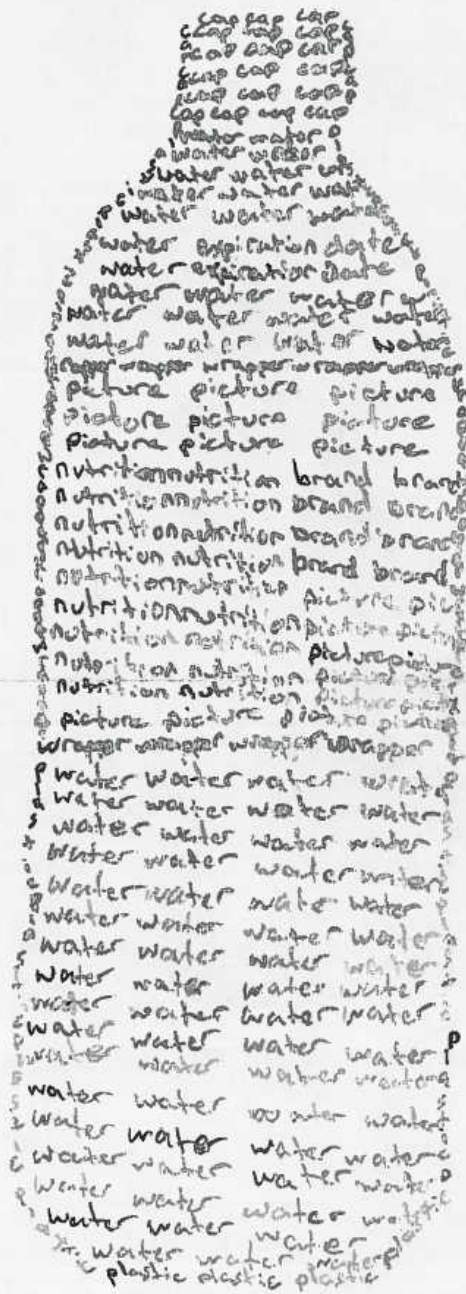 cap cap cap
cap cap cap
cap cap cap
cap cap cap
cap cap cap
cap cap cap cap
water water
water water
water water wat
water water wat
water water water
water expiration date
water expiration date
water water water
water water water water
water water water water
wrapper wrapper wrapper wrapper
picture picture picture
picture picture picture
picture picture picture
nutrition nutrition brand brand
nutrition nutrition brand brand
nutrition nutrition brand brand
nutrition nutrition brand brand
nutrition nutrition picture pic
nutrition nutrition picture pictur
nutrition nutrition picture pictur
nutrition nutrition picture pic
nutrition nutrition picture pictu
picture picture picture picture
wrapper wrapper wrapper wrapper
water water water wat
water water water water
water water water water
water water water water
water water wate water
water water water water
water water water water
water water water water
water water water water
water water water water
water water water water
water water water water
water water water water
water water water water
water water water water
water water water water
water water water
plastic plastic plastic